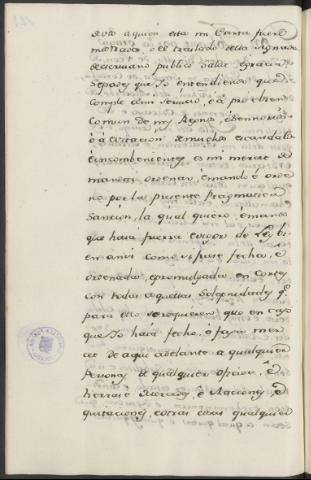 de vos a quien esta mi Carta fuere
mostrada, o el traslado della signado
de escriuano publico salud e gracia
Sepades que Yo entendiendo que
comple a mi seruicio, e a pro e bien
comun de mis Reynos e Sennorios
e a euitacion de muchos escandalos
e inconbenientes es mi merced de
mandar, ordenar, e mando e orde
no por la presente Pragmatica
Sancion, la qual quiero, e mando
que haia fuerza e vigor de ley bi
en ansi como si fuese fecha, e
ordenada, e promulgada en cortes
con todas aquellas Solepnidades qe
para ello se requieren que en caso
que Yo haia fecho, o faga mer
ced de aqui adelante a qualquier
Persona de qualquier oficio, e
herraes Mercedes, e Raciones, e
quitaciones, e otras cosas qualquier